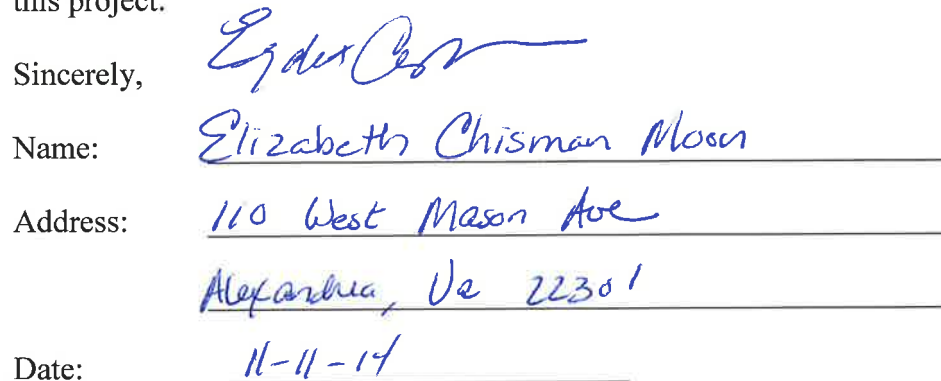 this project.
Sincerely,
Name: Elizabeth Chisman Moon
Address: 110 West Mason Ave
Alexandria, Va 22301
Date: 11-11-14